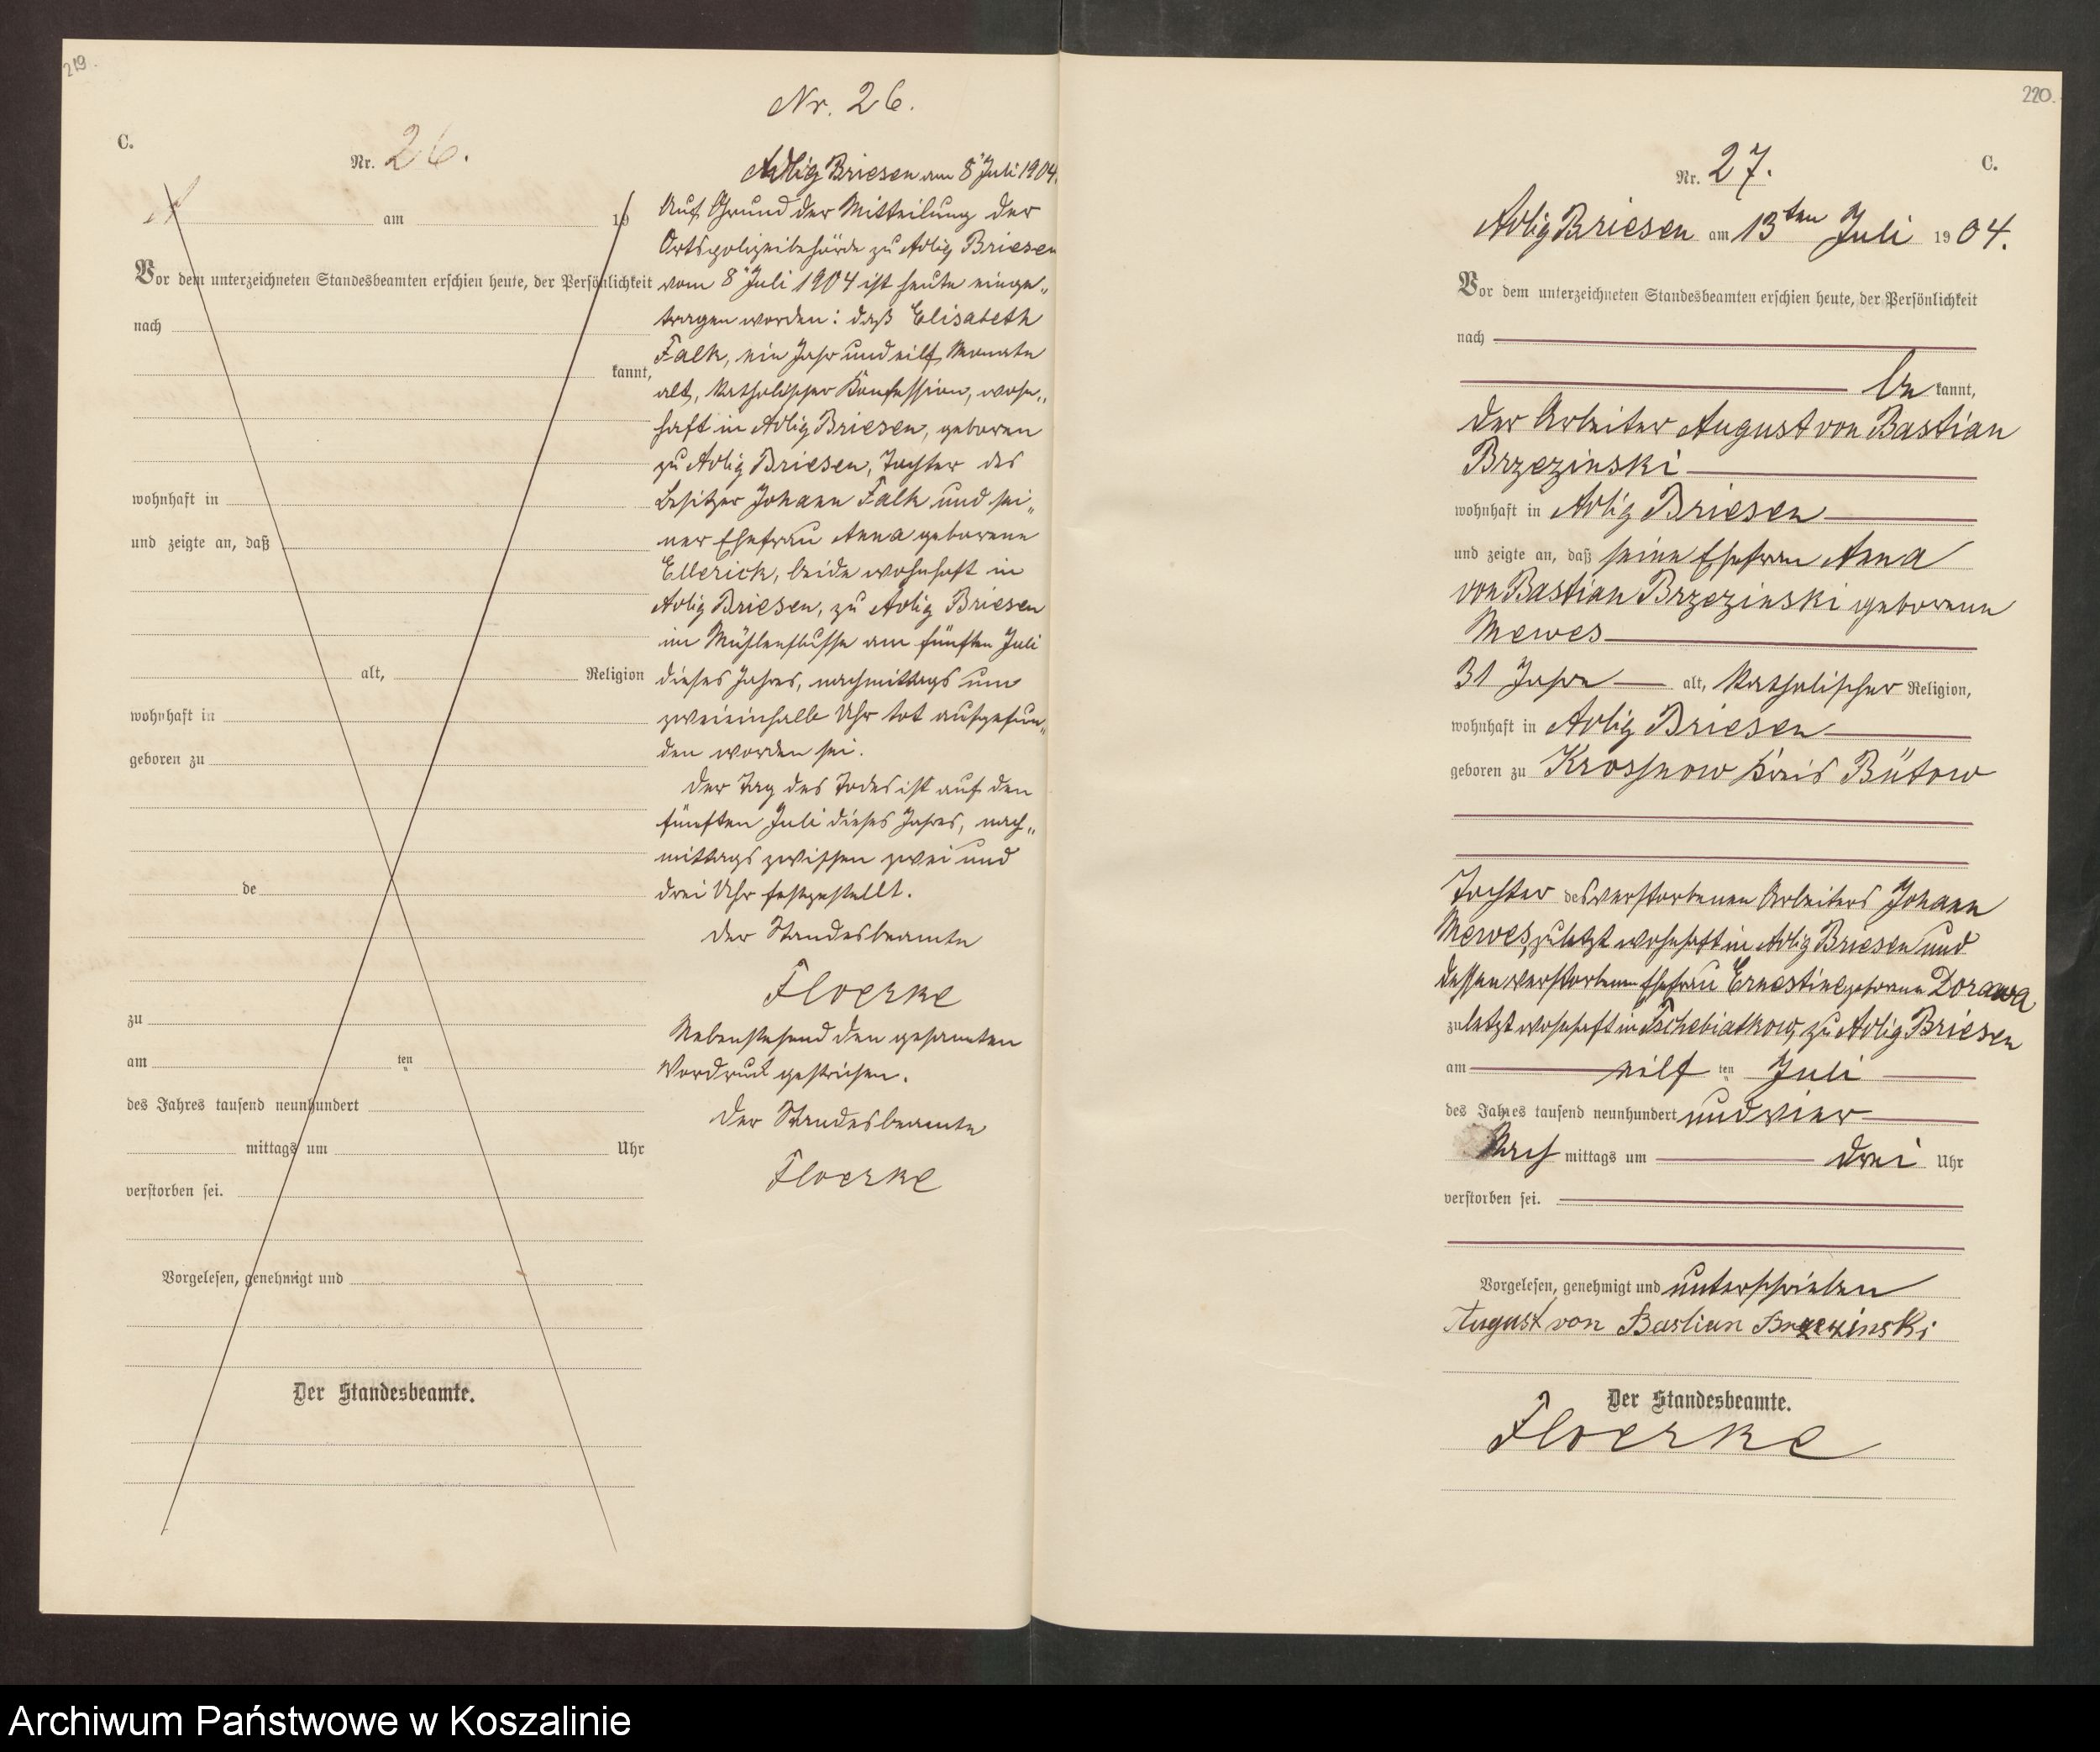 219.
C.
Nr. 26.
am 19
Vor dem unterzeichneten Standesbeamten erschien heute, der Persönlichkeit
nach
kannt,
wohnhaft in
und zeigte an, daß
alt, Religion
wohnhaft in
geboren zu
de
zu
am ten
des Jahres tausend neunhundert
mittags um Uhr
verstorben sei.
Vorgelesen, genehmigt und
Der Standesbeamte.
Nr. 26.
Adlig Briesen am 8" Juli 1904.
Auf Grund der Mitteilung der
Ortspolizeibehörde zu Adlig Briesen
vom 8" Juli 1904 ist heute einge„
tragen worden: daß Elisabeth
Falk, ein Jahr und eilf Monate
alt, katholischer Konfession, wohn„
haft in Adlig Briesen, geboren
zu Adlig Briesen, Tochter des
Besitzer Johann Falk und sei„
ner Ehefrau Anna geborene
Ellerick, beide wohnhaft in
Adlig Briesen, zu Adlig Briesen
im Mühlenflusse am fünften Juli
dieses Jahres, nachmittags um
zweieinhalb Uhr tot aufgefun„
den worden sei.
Der Tag des Todes ist auf den
fünften Juli dieses Jahres, nach„
mittags zwischen zwei und
drei Uhr festgestellt.
Der Standesbeamte
Floerke
Nebenstehend den gesamten
Vordruck gestrichen.
Der Standesbeamte
Floerke
220.
C.
Nr. 27.
Adlig Briesen am 13ten Juli 1904.
Vor dem unterzeichneten Standesbeamten erschien heute, der Persönlichkeit
nach
be kannt,
der Arbeiter August von Bastian
Brzezinski
wohnhaft in Adlig Briesen
und zeigte an, daß seine Ehefrau Anna
von Bastian Brzezinski geborene
Mewes
31 Jahre alt, katholischer Religion,
wohnhaft in Adlig Briesen
geboren zu Krossnow Kreis Bütow
Tochter des verstorbenen Arbeiters Johann
Mewes, zuletzt wohnhaft in Adlig Briesen und
dessen verstorbenen Ehefrau Ernestine geborene Dorawa
zuletzt wohnhaft in Tschebiatkow, zu Adlig Briesen
am eilf ten Juli
des Jahres tausend neunhundert und vier
Nach mittags um drei Uhr
verstorben sei.
Vorgelesen, genehmigt und unterschrieben
August von Bastian Brzezinski
Der Standesbeamte.
Floerke
Archiwum Państwowe w Koszalinie